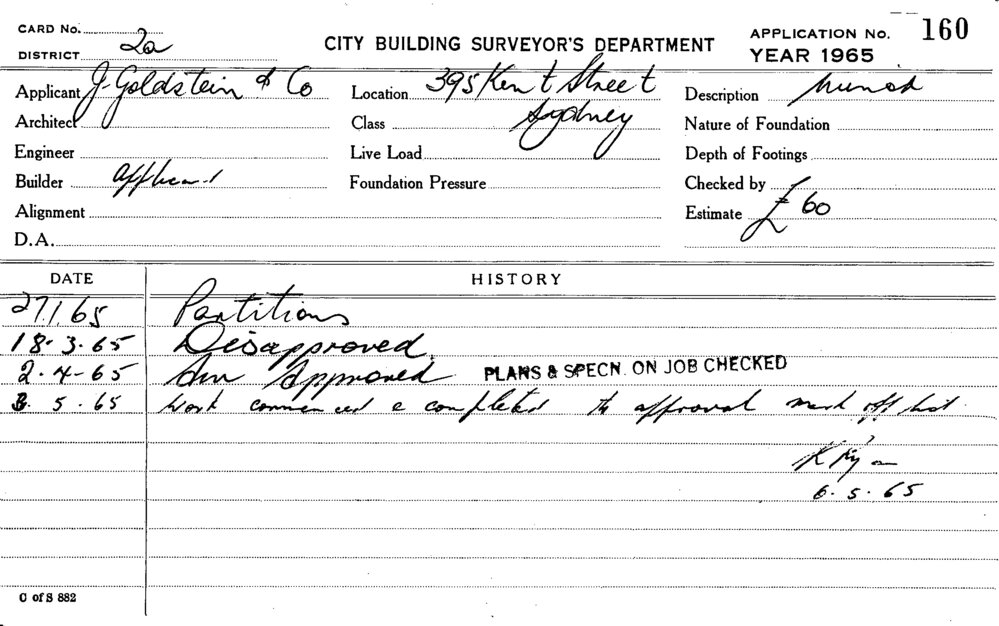 CARD No.
DISTRICT 2a
CITY BUILDING SURVEYOR'S DEPARTMENT
APPLICATION No. 160
YEAR 1965
Applicant J. Goldstein & Co
Location 395 Kent Street
Sydney
Description
Architect
Class
Nature of Foundation
Engineer
Live Load
Depth of Footings
Builder Applicant
Foundation Pressure
Checked by
Alignment
Estimate £60
D.A.
DATE HISTORY
27.1.65 Partitions
18.3.65 Disapproved
2.4-65 Approved PLANS & SPECN. ON JOB CHECKED
5.65 Work commenced & completed to approval mark off list
6.5.65
C of S 882